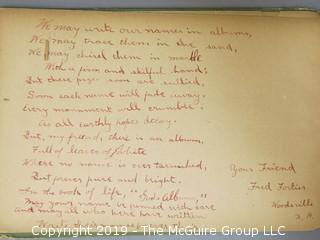 We may write our names in albums,
We may trace them in the sand,
We may chisel them in marble
With a firm and skilful hand;
But these pages soon are sullied,
Soon each name will fade away.
Every monument will crumble.
As all earthly hopes decay.
But, my friend, there is an album,
Full of leaves of
Where no name is ever tarnished,
But forever pure and bright.
In the book of life, "God's Album"
May your name be penned with care
And may all who here have written
Your Friend
Fred
Woodsville
N. H.
Copyright 2019 - The McGuire Group LLC